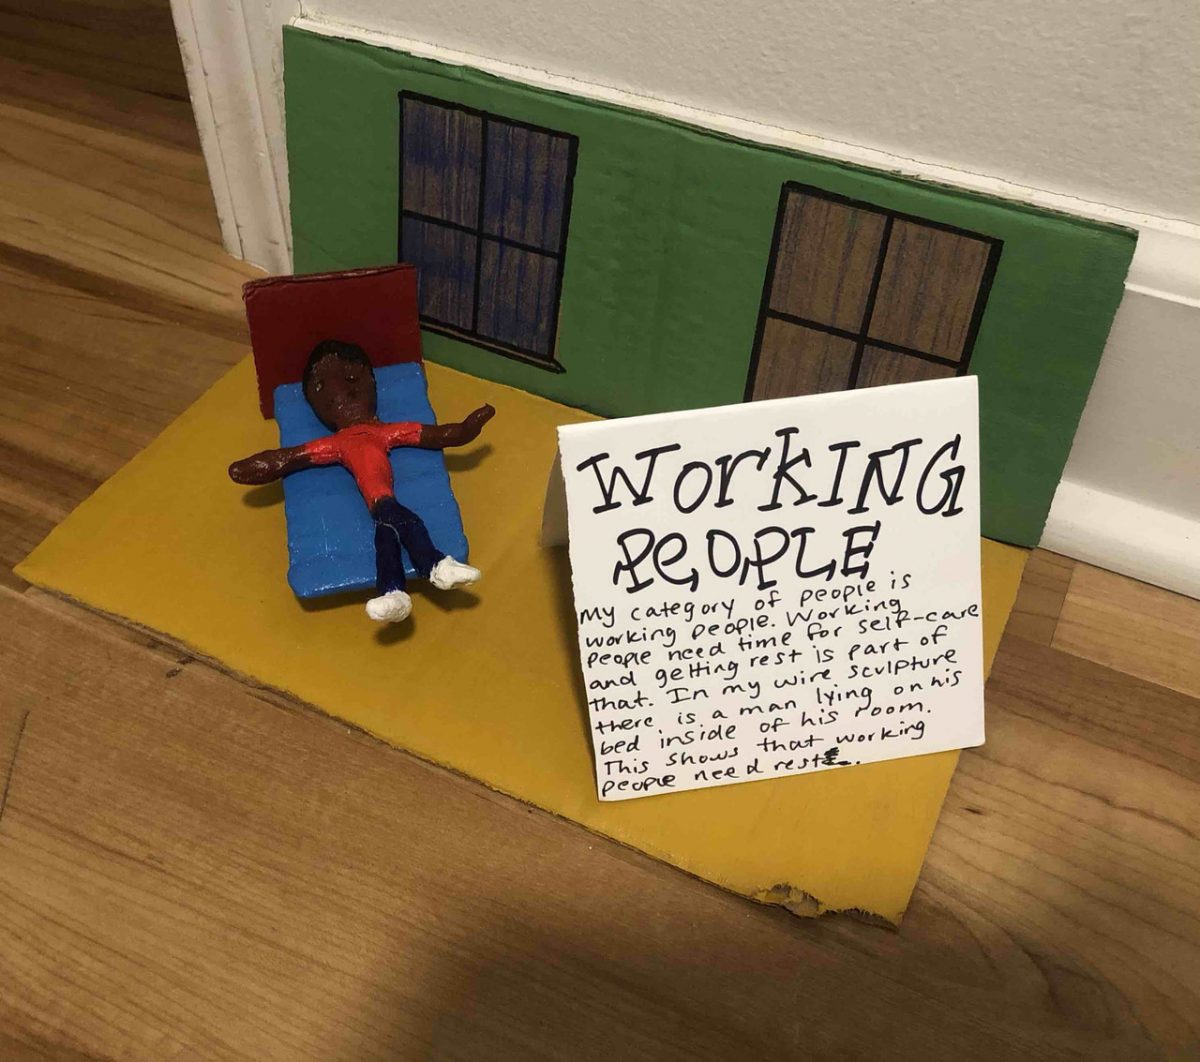 WorKING
PEOPLE
My category of people is
working people. Working
People need time for self-care
and getting rest is part of
that. In my wire sculpture
there is a man lying on his
bed inside of his room.
This shows that working
people need rest.